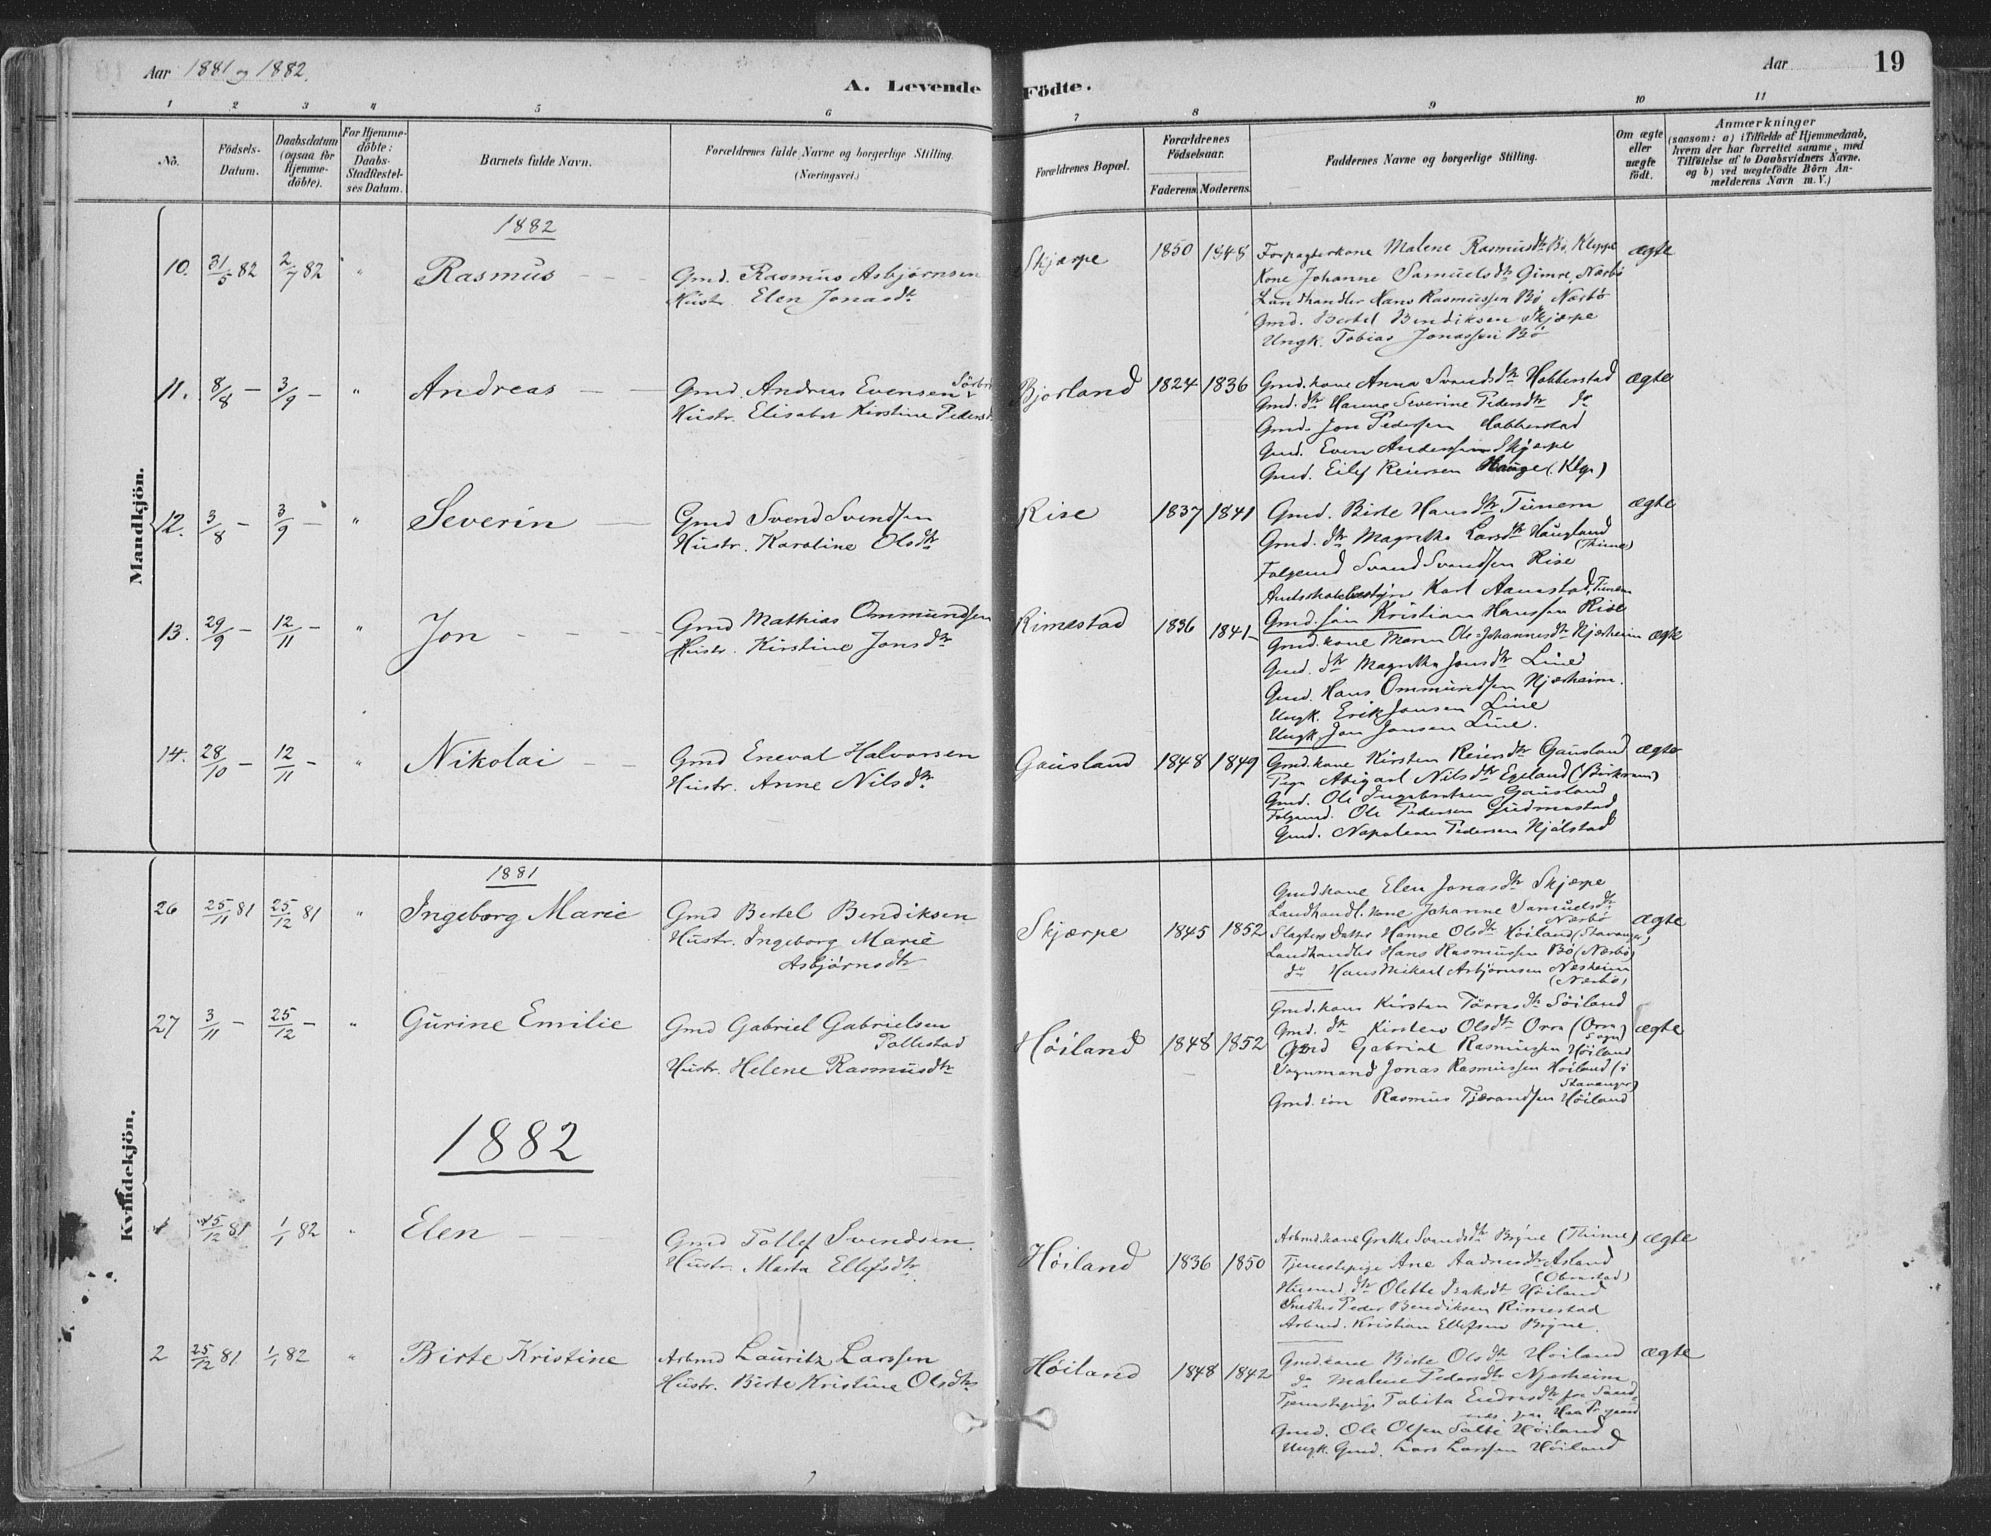 Aar 1881 og 1882.
A. Levende Födte.
Aar
19
1 2 3 4 5 6 7 8 9 10 11
No.
Födsels-Datum.
Daabsdatum (ogsaa for Hjemme-döbte).
For Hjemme-döbte: Daabs-Stadfæstel-ses Datum.
Barnets fulde Navn.
Forældrenes fulde Navne og borgerlige Stilling. (Næringsvei.)
Forældrenes Bopæl.
Forældrenes Födselsaar.
Faderens. Moderens.
Faddernes Navne og borgerlige Stilling.
Om ægte eller uægte födt.
Anmærkninger
(saasom: a) i Tilfælde af Hjemmedaab,
hvem der har forrettet samme, med
Tilföielse af to Daabsvidners Navne,
og b) ved uægtefödte Börn An-
mælderens Navn m. V.)
Mandkjön.
1882
10. 31/5 82 2/7 82 " Rasmus
Gmd. Rasmus Asbjørnsen
Hustr. Elen Jonasdtr
Skjærpe 1850 1848
Forpagterkone Malene Rasmusdtr Bø, Kleppe
Kone Johanne Samuelsdtr Gimre, Nærbø
Landhandler Hans Rasmussen Bø Nærbø
Gmd. Bertel Bendiksen Skjærpe
Ungk. Tobias Jonassen Bø
ægte
11. 8/8 – 3/9 – " Andreas
Gmd. Andreas Evensen
Hustr. Elisabet Kirstine Pedersd
Bjorland 1824 1836
Gmd. kone Anna Svendsdtr Hobberstad
Gmd. dtr Hanne Severine Pedersdtr do
Gmd. Jon Pedersen Hobberstad
Gmd. Even Andersen Skjærpe
Gmd. Eilef Reiersen Hauge (Klp.)
ægte
12. 3/8 – 3/9 – " Severin
Gmd Svend Svendsen
Hustr. Karoline Olsdtr
Rise 1837 1841
Gmd. Birte Hansdtr Tunem
Gmd. dtr Magrethe Larsdtr Haugland
(Thime)
Folgemd Svend Svendsen Rise
Amtsskolebestyr Karl Aanestad, Tunem
Gmd. søn Kristian Hansen Rise
ægte
13. 29/9 – 12/11 – " Jon
Gmd Mathias Ommundsen
Hustr. Kirstine Jonsdtr
Rimestad 1836 1841
Gmd. kone Maren Ols-Johannesdtr Njærheim
Gmd. dtr Magrethe Jonsdtr Line
Gmd. Hans Ommundsen Njærheim.
Ungk. Erik Jonsen Line
Ungk. Jon Jonsen Line.
ægte
14. 28/10 – 12/11 – " Nikolai
Gmd Eneval Halvorsen
Hustr. Anne Nilsdtr
Gausland 1848 1849
Gmd. kone Kirsten Reiersdtr Gausland
Pige Abigael Nilsdtr Egeland (Birkrem)
Gmd. Ole Ingebretsen Gausland
Folgemd. Ole Pedersen Gudmestad
Gmd. Napoleon Pedersen Njølstad
ægte
Kvindekjön.
1881
26 25/11 81 25/12 81 " Ingeborg Marie
Gmd Bertel Bendiksen
Hustr. Ingeborg Marie
Asbjørnsdtr
Skjærpe 1845 1852
Gmd. kone Elen Jonasdtr Skjærpe
Landhandl. kone Johanne Samuelsdtr
Nærbø
Slagters Datter Hanne Olsdtr Høiland (Stavanger)
Landhandler Hans Rasmussen Bø (Nærbø)
do Hans Mikael Asbjørnsen Næsheim
(Nærbø)
ægte
27 3/11 – 25/12 – " Gurine Emilie
Gmd Gabriel Gabrielsen
Tollestad
Hustr. Helene Rasmusdtr
Høiland 1848 1852
Gmd. kone Kirsten Tørresdtr Søiland
Gmd. dtr Kirsten Olsdtr Orre (Orre
Sogn)
Gmd Gabriel Rasmussen Høiland
Vognmand Jonas Rasmussen Høiland (i
Stavanger)
Gmd. søn Rasmus Tjerandsen Høiland
ægte
1882
1 15/12 81 1/1 82 " Elen
Gmd Tollef Svendsen.
Hustr. Marta Ellefsdtr.
Høiland 1836 1850
Arbmd. kone Grethe Svendsdtr Bryne (Thime)
Tjenestepige Ane Aadnesdtr Asland
(Obrestad)
Husmd. dtr Olette Isaksdtr Høiland
Snedker Peder Bendiksen Rimestad
Arbmd. Kristian Ellefsen Bryne.
ægte
2 25/12 81 1/1 82 " Birte Kristine
Arbmd Lauritz Larssen
Hustr. Birte Kristine Olsdtr
Høiland 1848 1842
Gmd. kone Birte Olsdtr Høiland
do Malene Pedersdtr Njærheim
Tjenestepige Tabita Endresdtr
Haa Pr. gaard
Gmd. Ole Olsen Salte Høiland
Ungk. Gmd. Lars Larssen Høiland
ægte